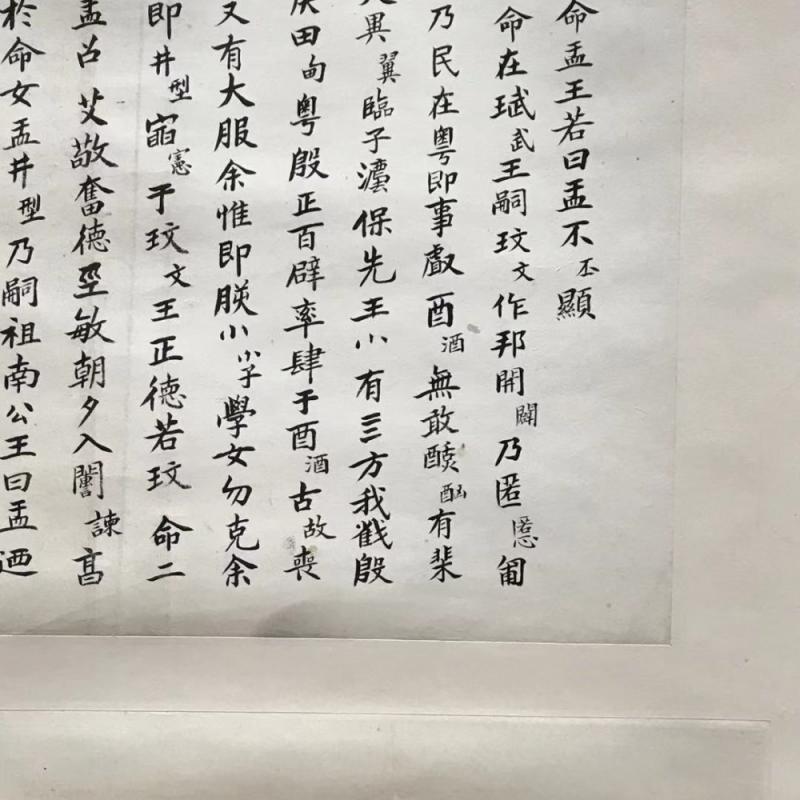 命盂王若曰盂不丕顯
命在珷武王嗣玟文作邦開闢乃匿慝匍
乃民在粤即事𠭯酉酒無敢有枈
異翼臨子灋保先王小有亖方我殷
田甸粤殷正百辟率肆于酉酒古故喪
又有大服余惟即朕小小子學女勿克余
即井型憲于玟文王正德若玟 命二
盂召 艾敬奮德巠敏朝夕入諫
於命女盂井型乃嗣祖南公王曰盂迺